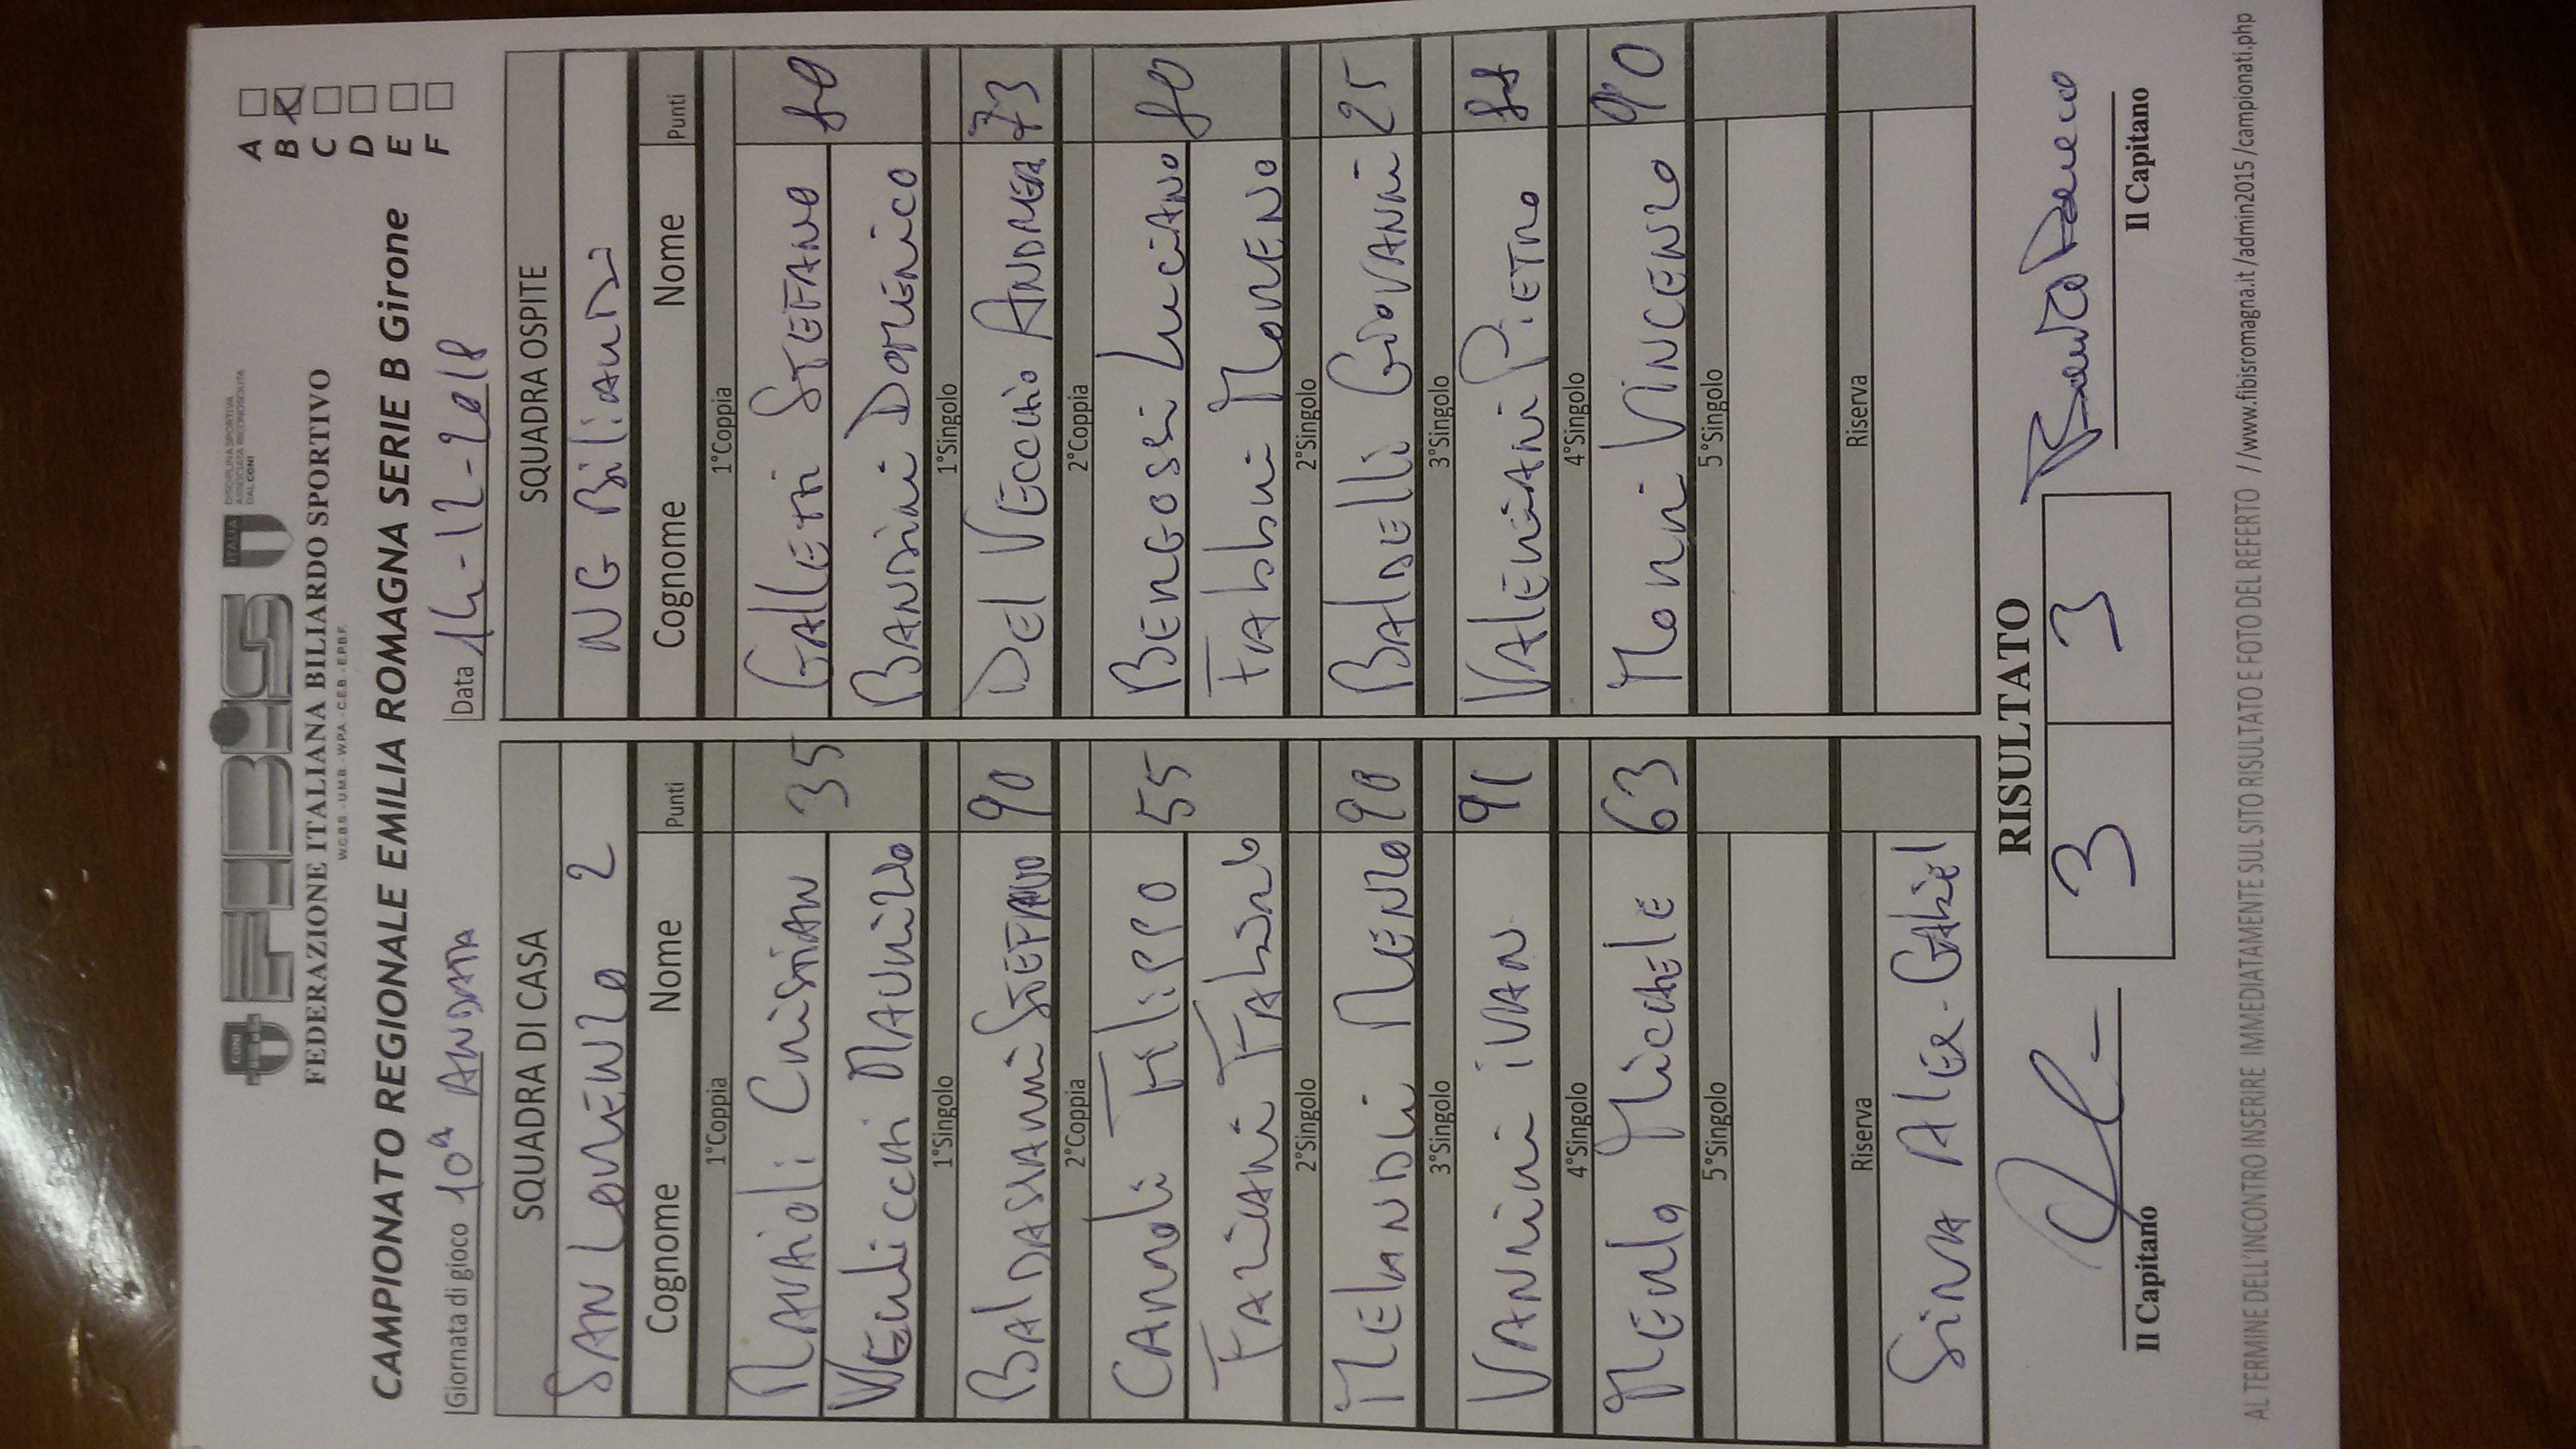 CONI
FEBIS
ITALIA
DISCIPLINA SPORTIVA
ASSOCIATA RICONOSCIUTA
DAL CONI
FEDERAZIONE ITALIANA BILIARDO SPORTIVO
W.C.B.S - U.M.B - W.P.A - C.E.B - E.P.B.F.
CAMPIONATO REGIONALE EMILIA ROMAGNA SERIE B Girone
A
B X
C
D
E
F
Giornata di gioco 10ª ANDATA Data 14-12-2018
SQUADRA DI CASA SQUADRA OSPITE
SAN LORENZO 2 NG Biliardi
Cognome Nome Punti Cognome Nome Punti
1°Coppia 1°Coppia
Ravaioli Cristian 35 Galletti STEFANO 80
Verlicchi Maurizio Bandini Domenico
1°Singolo 1°Singolo
Baldassarri STEFANO 90 Del Vecchio ANDREA 73
2°Coppia 2°Coppia
Caroli Filippo 55 Bergossi Luciano 80
Faziani Fabrizio Fabbri MORENO
2°Singolo 2°Singolo
Melandri RENZO 90 Baldelli Giovanni 25
3°Singolo 3°Singolo
Vannini iVAN 91 Valeriani PiETRO
4°Singolo 4°Singolo
Merlo Michele 63 Monni VINCENZO 90
5°Singolo 5°Singolo
Riserva Riserva
Alex-Gabriel
RISULTATO
3 3
Il Capitano Il Capitano
AL TERMINE DELL'INCONTRO INSERIRE IMMEDIATAMENTE SUL SITO RISULTATO E FOTO DEL REFERTO //www.fibisromagna.it/admin2015/campionati.php